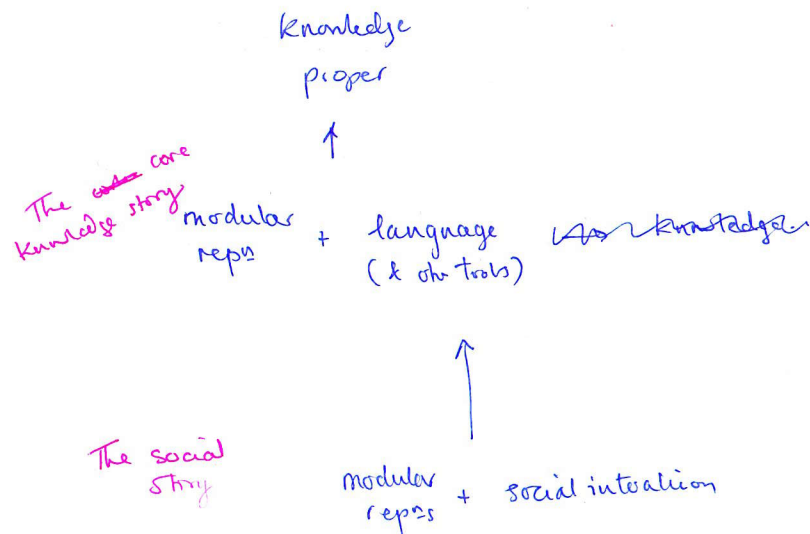 knowledge
proper
The core
knowledge story
modular
repns
+ language
(& othr tools)
knowledge
The social
story
modular
repns
+ social interaction